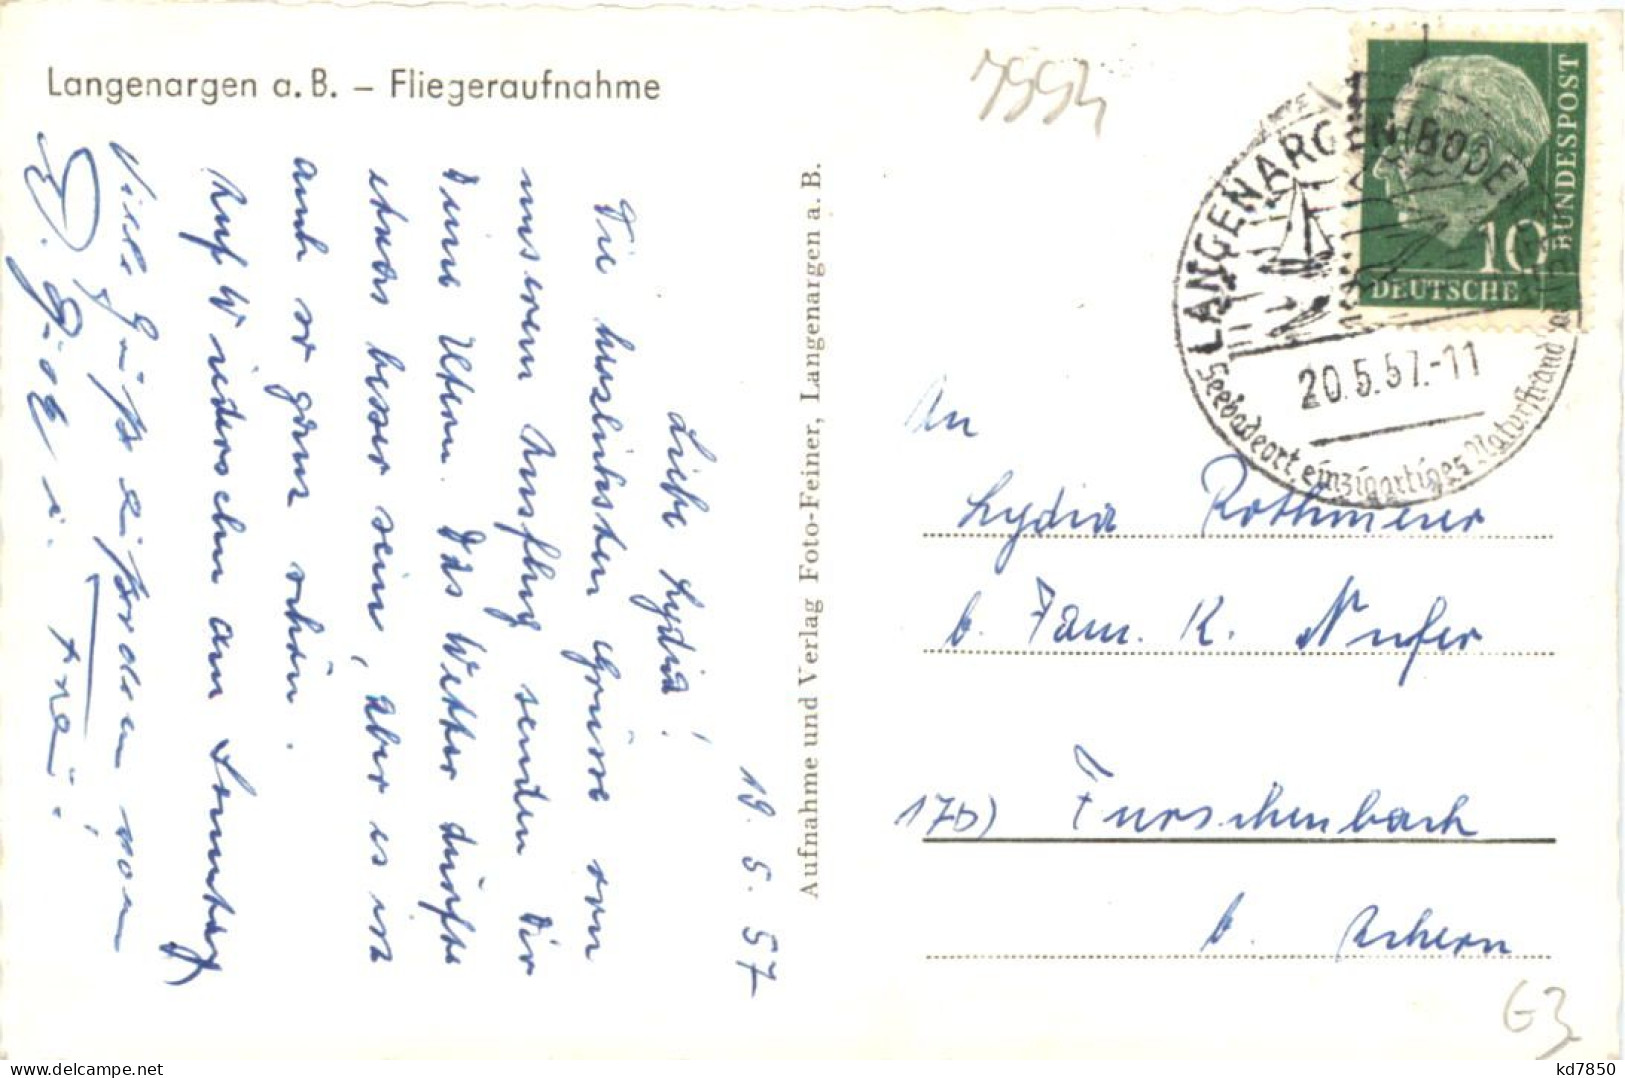 Langenargen a. B. – Fliegeraufnahme
7994
19. 5. 57
Liebe Lydia!
Die herzlichsten Grüsse von
unserem Ausflug senden Dir
Deine Eltern. Das Wetter dürfte
etwas besser sein, aber es ist
auch so ganz schön.
Auf Wiedersehn am Sonntag
Viele Grüße außerdem von
Aufnahme und Verlag Foto-Feiner, Langenargen a. B.
LANGENARGEN (BODENSEE)
20.5.57.-11
Seebadeort einzigartiges Naturstrandbad
10
DEUTSCHE
BUNDESPOST
An
Lydia Rothmeier
b. Fam. K. Nufer
17b) Furschenbach
b. Achern
G3
kd7850